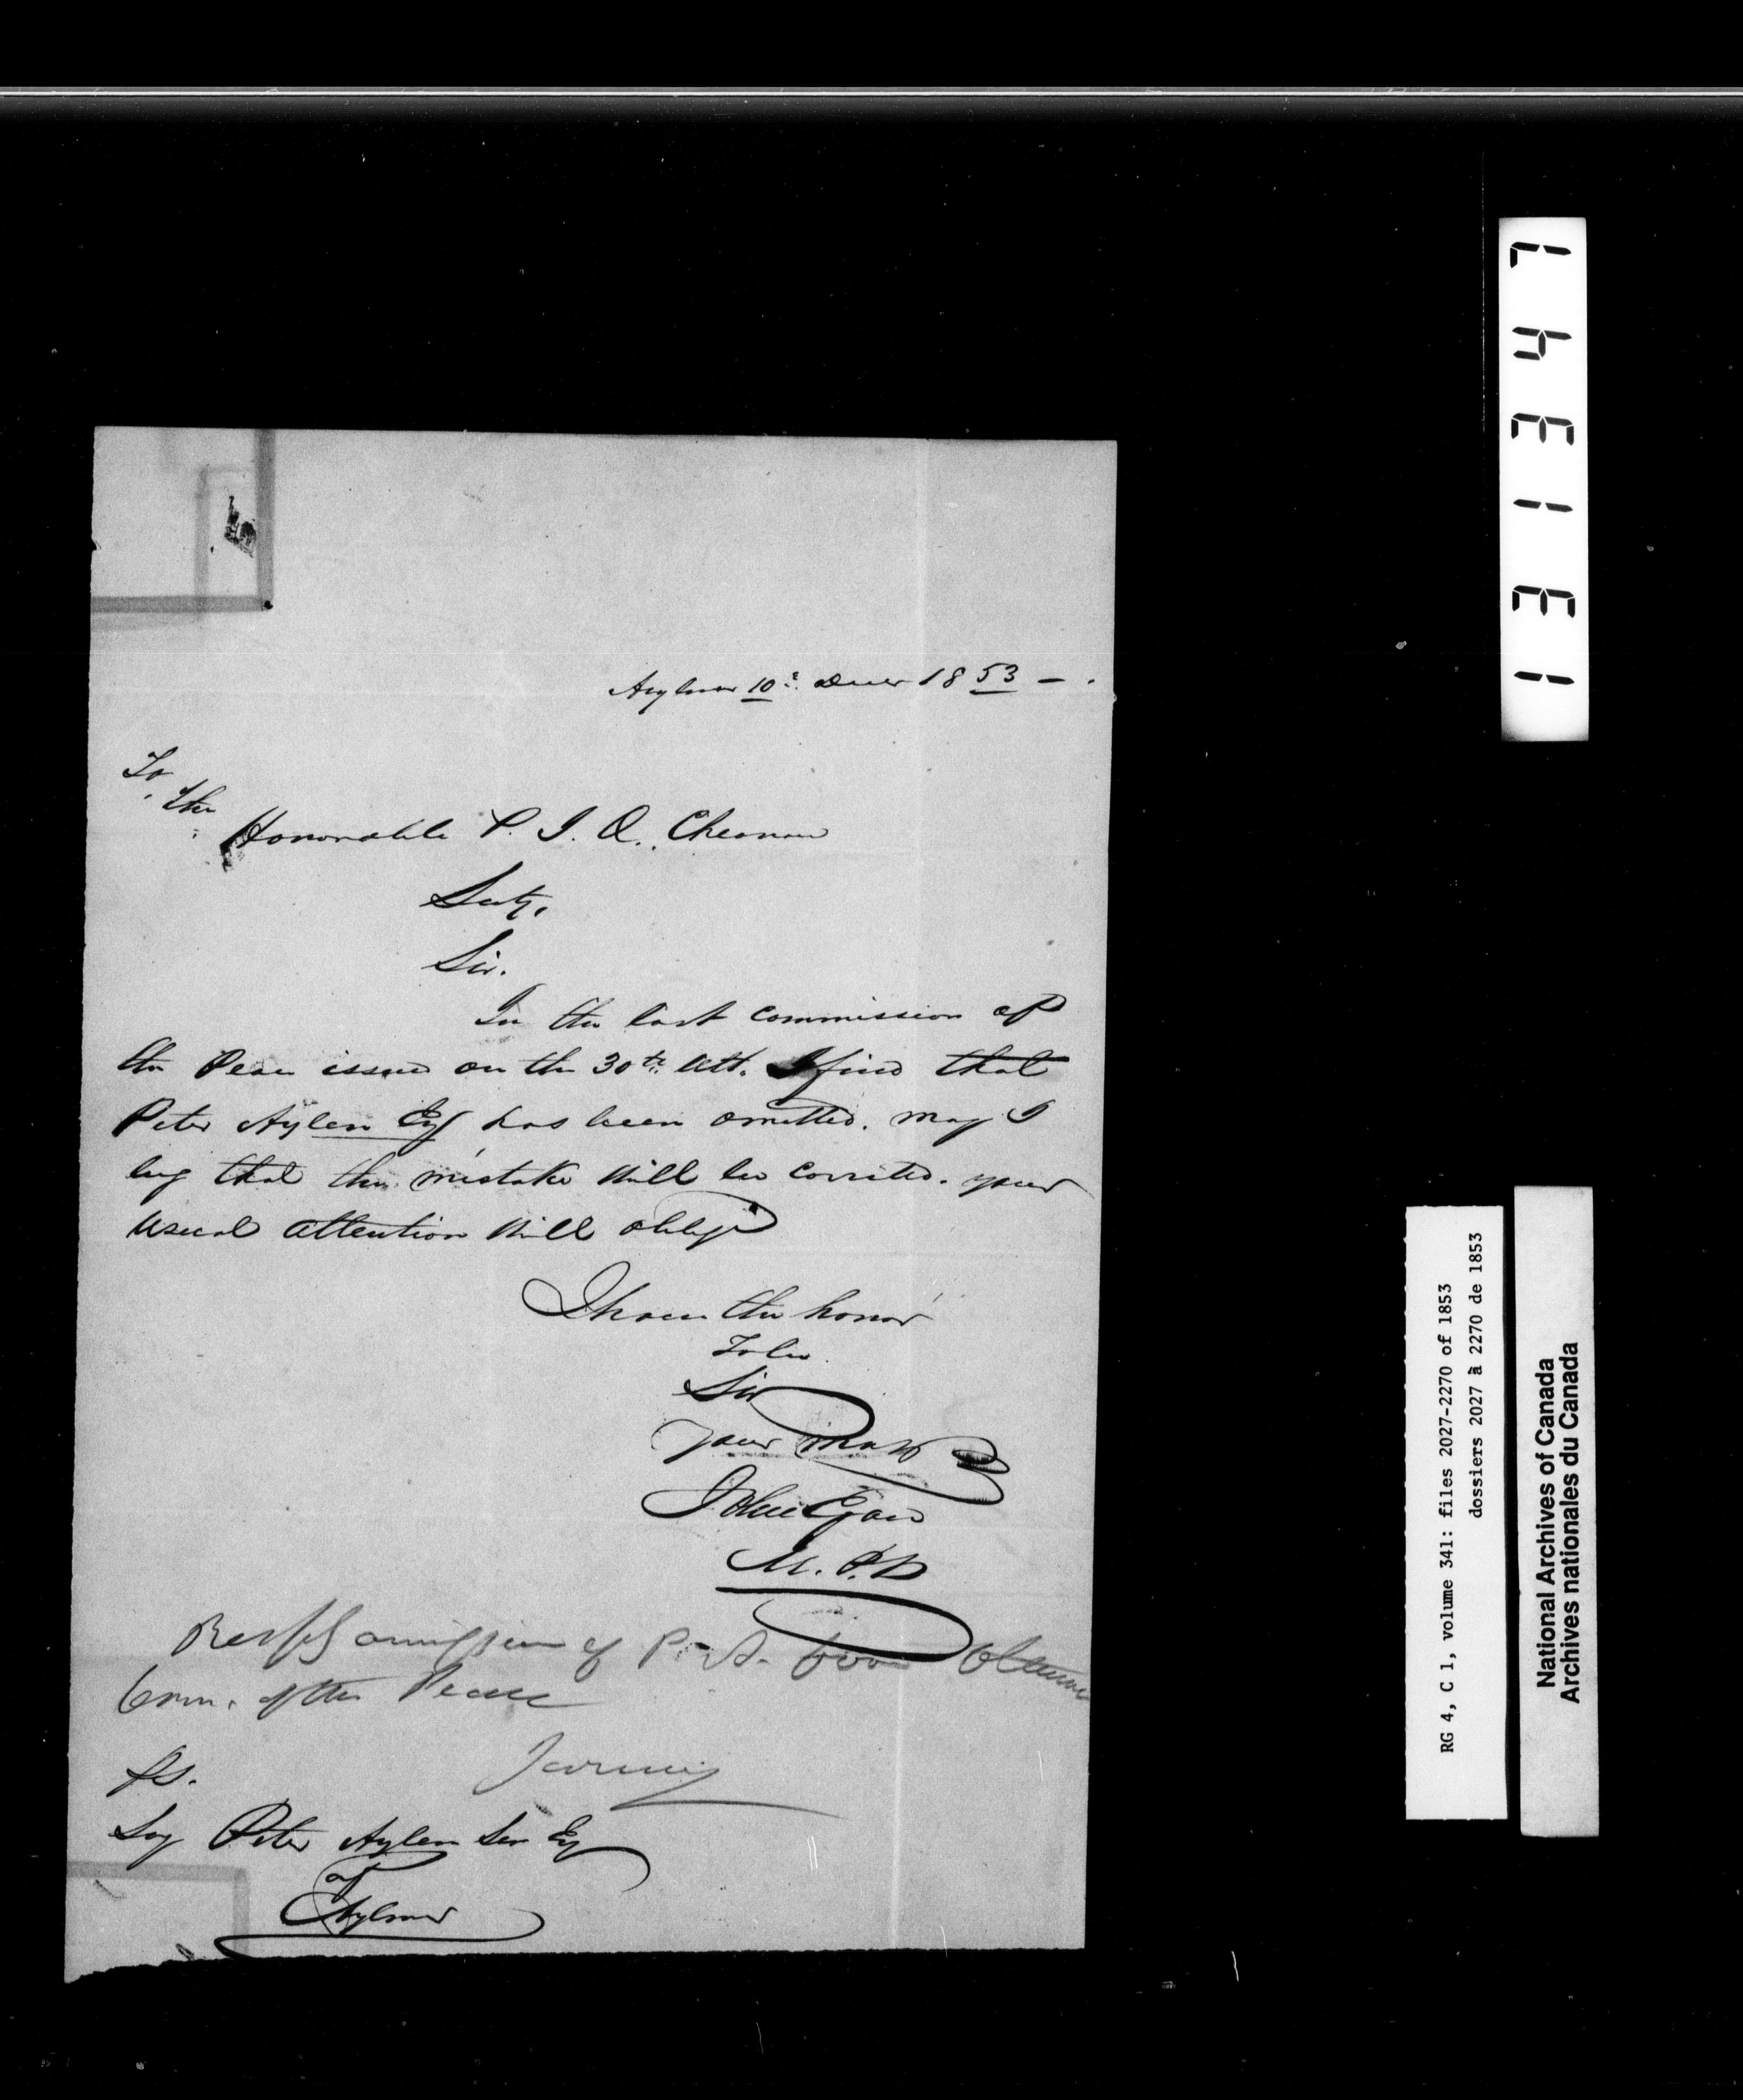 Aylmer 10th Decer 1853 -.
To
the
Honorable P. J. O. Cheauvau
Secty.
Sir.
In the last commission of
the Peace issued on the 30th Ult. I find that
Peter Aylen Esq has been omitted. may I
beg that this mistake will be corrected. your
usual attention will oblige
I have the honor
To be
Sir
your
John Egan
M.P.P
omission of P. A. from Ottawa
Comn. of the Peace
PS.
Say Peter Aylen Sen Esq
of
Aylmer
131347
RG 4, C 1, volume 341: files 2027-2270 of 1853
dossiers 2027 à 2270 de 1853
National Archives of Canada
Archives nationales du Canada